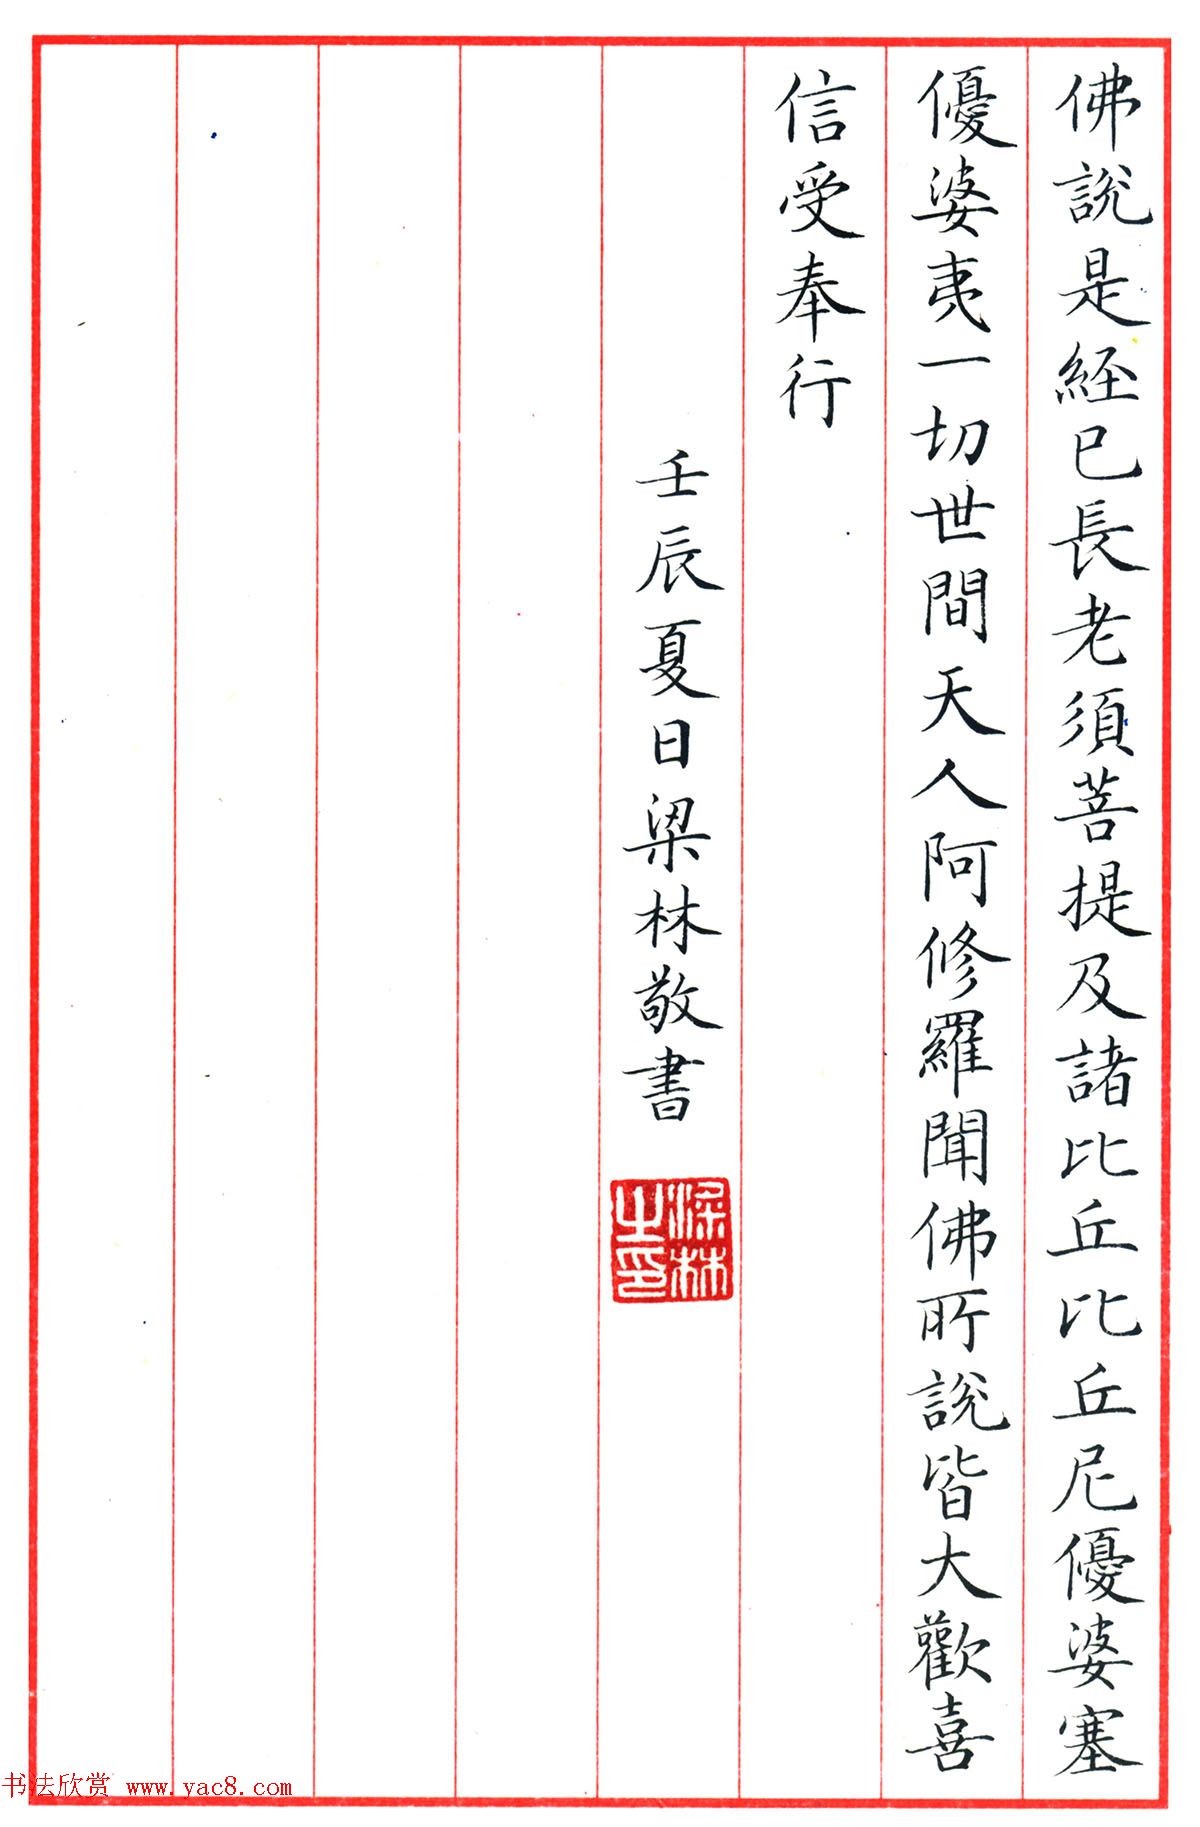 佛說是經已長老須菩提及諸比丘比丘尼優婆塞
優婆夷一切世間天人阿修羅聞佛所說皆大歡喜
信受奉行
壬辰夏日梁林敬書
梁林之印
书法欣赏 www.yac8.com